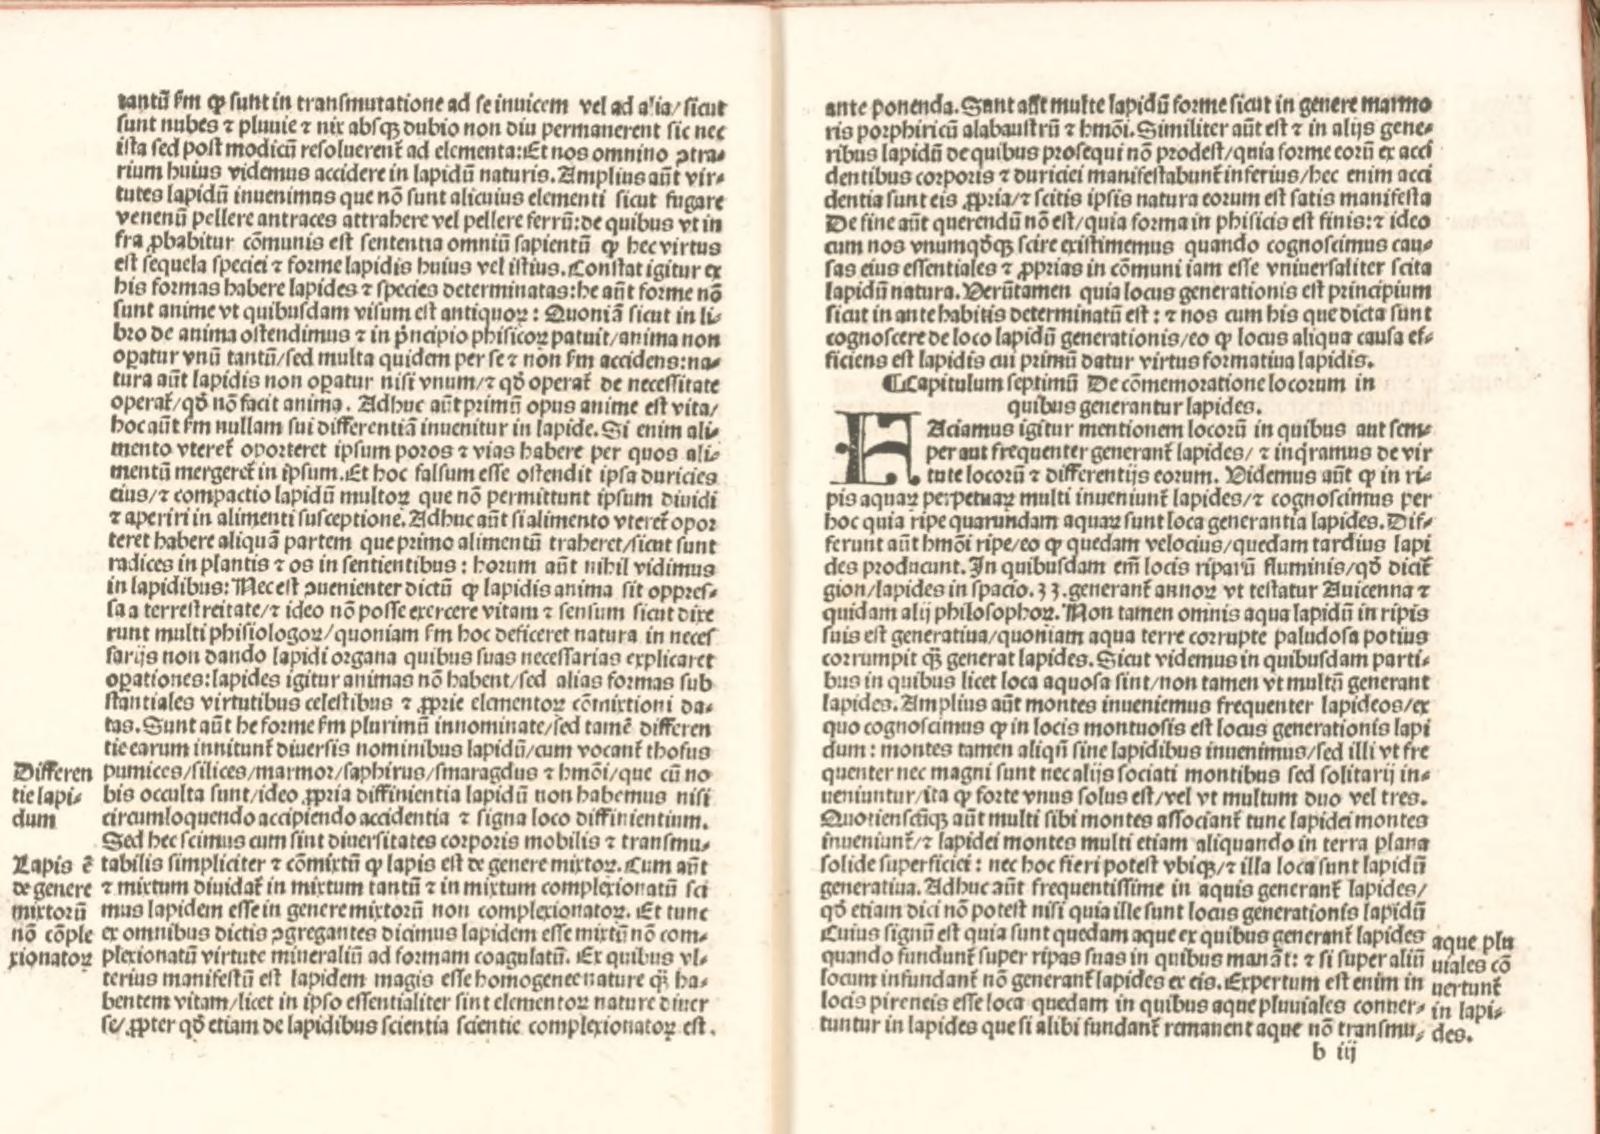 tantū ẜm ꝙ sunt in transmutatione ad se inuicem vel ad alia/sicut
sunt nubes ⁊ pluuie ⁊ nix absqꝫ dubio non diu permanerent sic nec
ista sed post modicū resoluerenť ad elementa:Et nos omnino ꝯtra⸗
rium huius videmus accidere in lapidū naturis. Amplius aūt vir⸗
tutes lapidū inuenimus que nō sunt alicuius elementi sicut fugare
venenū pellere antraces attrahere vel pellere ferrū:de quibus vt in
fra ꝓbabitur cōmunis est sententia omniū sapientū ꝙ hec virtus
est sequela speciei ⁊ forme lapidis huius vel istius. Constat igitur ex
his formas habere lapides ⁊ species determinatas:he aūt forme nō
sunt anime vt quibusdam visum est antiquoꝝ: Quoniā sicut in li⸗
bro de anima ostendimus ⁊ in pṅcipio phisicoꝝ patuit/anima non
oꝑatur vnū tantū/sed multa quidem per se ⁊ non ẜm accidens:na⸗
tura aūt lapidis non oꝑatur nisi vnum/⁊ qđ operať de necessitate
operať/qđ nō facit anima. Adhuc aūt primū opus anime est vita/
hoc aūt ẜm nullam sui differentiā inuenitur in lapide. Si enim ali⸗
mento vtereť oporteret ipsum poros ⁊ vias habere per quos ali⸗
mentū mergereť in ipsum. Et hoc falsum esse ostendit ipsa duricies
eius/⁊ compactio lapidū multoꝝ que nō permittunt ipsum diuidi
⁊ aperiri in alimenti susceptione. Adhuc aūt si alimento vtereť opoꝛ
teret habere aliquā partem que primo alimentū traheret/sicut sunt
radices in plantis ⁊ os in sentientibus: horum aūt nihil vidimus
in lapidibus: Nec est ꝯuenienter dictū ꝙ lapidis anima sit oppres⸗
sa a terrestreitate/⁊ ideo nō posse exercere vitam ⁊ sensum sicut dixe
runt multi phisiologoꝝ/quoniam ẜm hoc deficeret natura in necef
sarijs non dando lapidi organa quibus suas necessarias explicaret
oꝑationes:lapides igitur animas nō habent/sed alias formas sub
stantiales virtutibus celestibus ⁊ ꝓprie elementoꝝ cōmixtioni da⸗
tas. Sunt aūt he forme ẜm plurimū innominate/sed tamē differen
tie earum innitunť diuersis nominibus lapidū/cum vocanť thofus
Differen
tie lapi⸗
dum
pumices/silices/marmor/saphirus/smaragdus ⁊ hmōi/que cū no
bis occulta sunt/ideo ꝓpria diffinientia lapidū non habemus nisi
circumloquendo accipiendo accidentia ⁊ signa loco diffinientium.
Sed hec scimus cum sint diuersitates corporis mobilis ⁊ transmu⸗
Lapis ē
de genere
mixtorū
nō cōple
xionatoꝝ
tabilis simpliciter ⁊ cōmixtū ꝙ lapis est de genere mixtoꝝ. Cum aūt
⁊ mixtum diuidať in mixtum tantū ⁊ in mixtum complexionatū sci
mus lapidem esse in genere mixtorū non complexionatoꝝ. Et tunc
ex omnibus dictis ꝯgregantes dicimus lapidem esse mixtū nō com⸗
plexionatū virtute mineraliū ad formam coagulatū. Ex quibus vl⸗
terius manifestū est lapidem magis esse homogenee nature q̄ꝫ ha⸗
bentem vitam/licet in ipso essentialiter sint elementoꝝ nature diuer
se/ꝓpter qđ etiam de lapidibus scientia scientie complexionatoꝝ est.
ante ponenda. Sunt aūt multe lapidū forme sicut in genere marmo
ris porphiricū alabaustrū ⁊ hmōi. Similiter aūt est ⁊ in alijs gene⸗
ribus lapidū de quibus prosequi nō prodest/quia forme eorū ex acci
dentibus corporis ⁊ duriciei manifestabunť inferius/hec enim acci
dentia sunt eis ꝓpria/⁊ scitis ipsis natura eorum est satis manifesta
De fine aūt querendū nō est/quia forma in phisicis est finis:⁊ ideo
cum nos vnumqđqꝫ scire existimemus quando cognoscimus cau⸗
sas eius essentiales ⁊ ꝓprias in cōmuni iam esse vniuersaliter scita
lapidū natura. Verūtamen quia locus generationis est principium
sicut in ante habitis determinatū est: ⁊ nos cum his que dicta sunt
cognoscere de loco lapidū generationis/eo ꝙ locus aliqua causa ef⸗
ficiens est lapidis cui primū datur virtus formatiua lapidis.
¶Capitulum septimū De cōmemoratione locorum in
quibus generantur lapides.
FAciamus igitur mentionem locorū in quibus aut sem⸗
per aut frequenter generanť lapides/ ⁊ inq̇ramus de vir
tute locorū ⁊ differentijs eorum. Videmus aūt ꝙ in ri⸗
pis aquaꝝ perpetuaꝝ multi inueniunť lapides/⁊ cognoscimus per
hoc quia ripe quarundam aquaꝝ sunt loca generantia lapides. Dif⸗
ferunt aūt hmōi ripe/eo ꝙ quedam velocius/quedam tardius lapi
des producunt. In quibusdam em̄ locis riparū fluminis/qđ diciť
gion/lapides in spacio.33.generanť annoꝝ vt testatur Auicenna ⁊
quidam alij philosophoꝝ. Non tamen omnis aqua lapidū in ripis
suis est generatiua/quoniam aqua terre corrupte paludosa potius
corrumpit q̄ꝫ generat lapides. Sicut videmus in quibusdam parti⸗
bus in quibus licet loca aquosa sint/non tamen vt multū generant
lapides. Amplius aūt montes inueniemus frequenter lapideos/ex
quo cognoscimus ꝙ in locis montuosis est locus generationis lapi
dum: montes tamen aliqn̄ sine lapidibus inuenimus/sed illi vt fre
quenter nec magni sunt nec alijs sociati montibus sed solitarij in⸗
ueniuntur/ita ꝙ forte vnus solus est/vel vt multum duo vel tres.
Quotienscūqꝫ aūt multi sibi montes associanť tunc lapidei montes
inueniunť/⁊ lapidei montes multi etiam aliquando in terra plana
solide superficiei: nec hoc fieri potest vbiqꝫ/⁊ illa loca sunt lapidū
generatiua. Adhuc aūt frequentissime in aquis generanť lapides/
qđ etiam dici nō potest nisi quia ille sunt locus generationis lapidū
Cuius signū est quia sunt quedam aque ex quibus generanť lapides
quando fundunť super ripas suas in quibus manāt: ⁊ si super aliū
locum infundanť nō generanť lapides ex eis. Expertum est enim in
locis pireneis esse loca quedam in quibus aque pluuiales conuer⸗
tuntur in lapides que si alibi fundanť remanent aque nō transmu⸗
aque plu
uiales cō
uertunť
in lapi⸗
des.
b iij